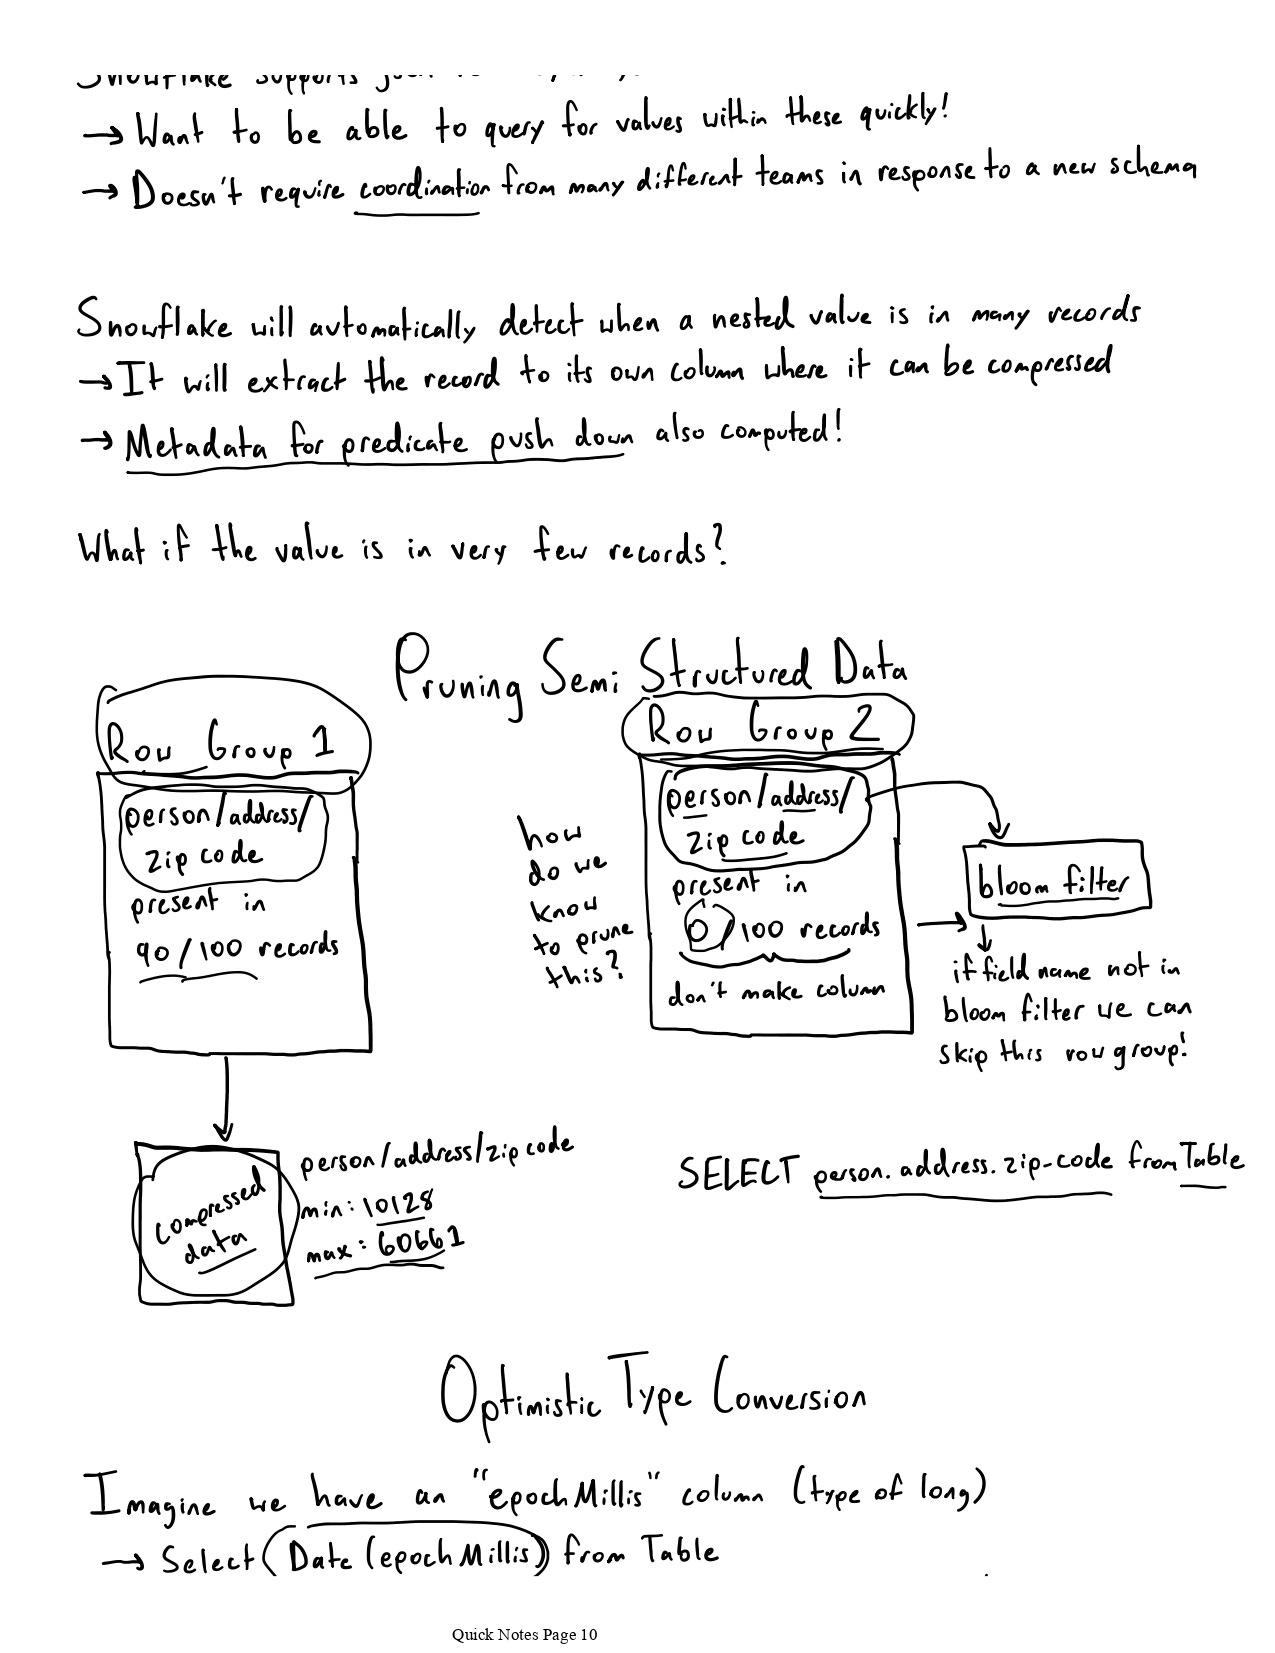 Snowflake supports
→ Want to be able to query for values within these quickly!
→ Doesn't require coordination from many different teams in response to a new schema
Snowflake will automatically detect when a nested value is in many records
→ It will extract the record to its own column where it can be compressed
→ Metadata for predicate push down also computed!
What if the value is in very few records?
Pruning Semi Structured Data
Row Group 1
person/address/
zip code
present in
90/100 records
compressed
data
person/address/zip code
min: 10128
max: 60661
how
do we
know
to prune
this?
Row Group 2
person/address/
zip code
present in
0/100 records
don't make column
bloom filter
if field name not in
bloom filter we can
skip this row group!
SELECT person.address.zip-code from Table
Optimistic Type Conversion
Imagine we have an "epochMillis" column (type of long)
→ Select (Date (epochMillis)) from Table
Quick Notes Page 10